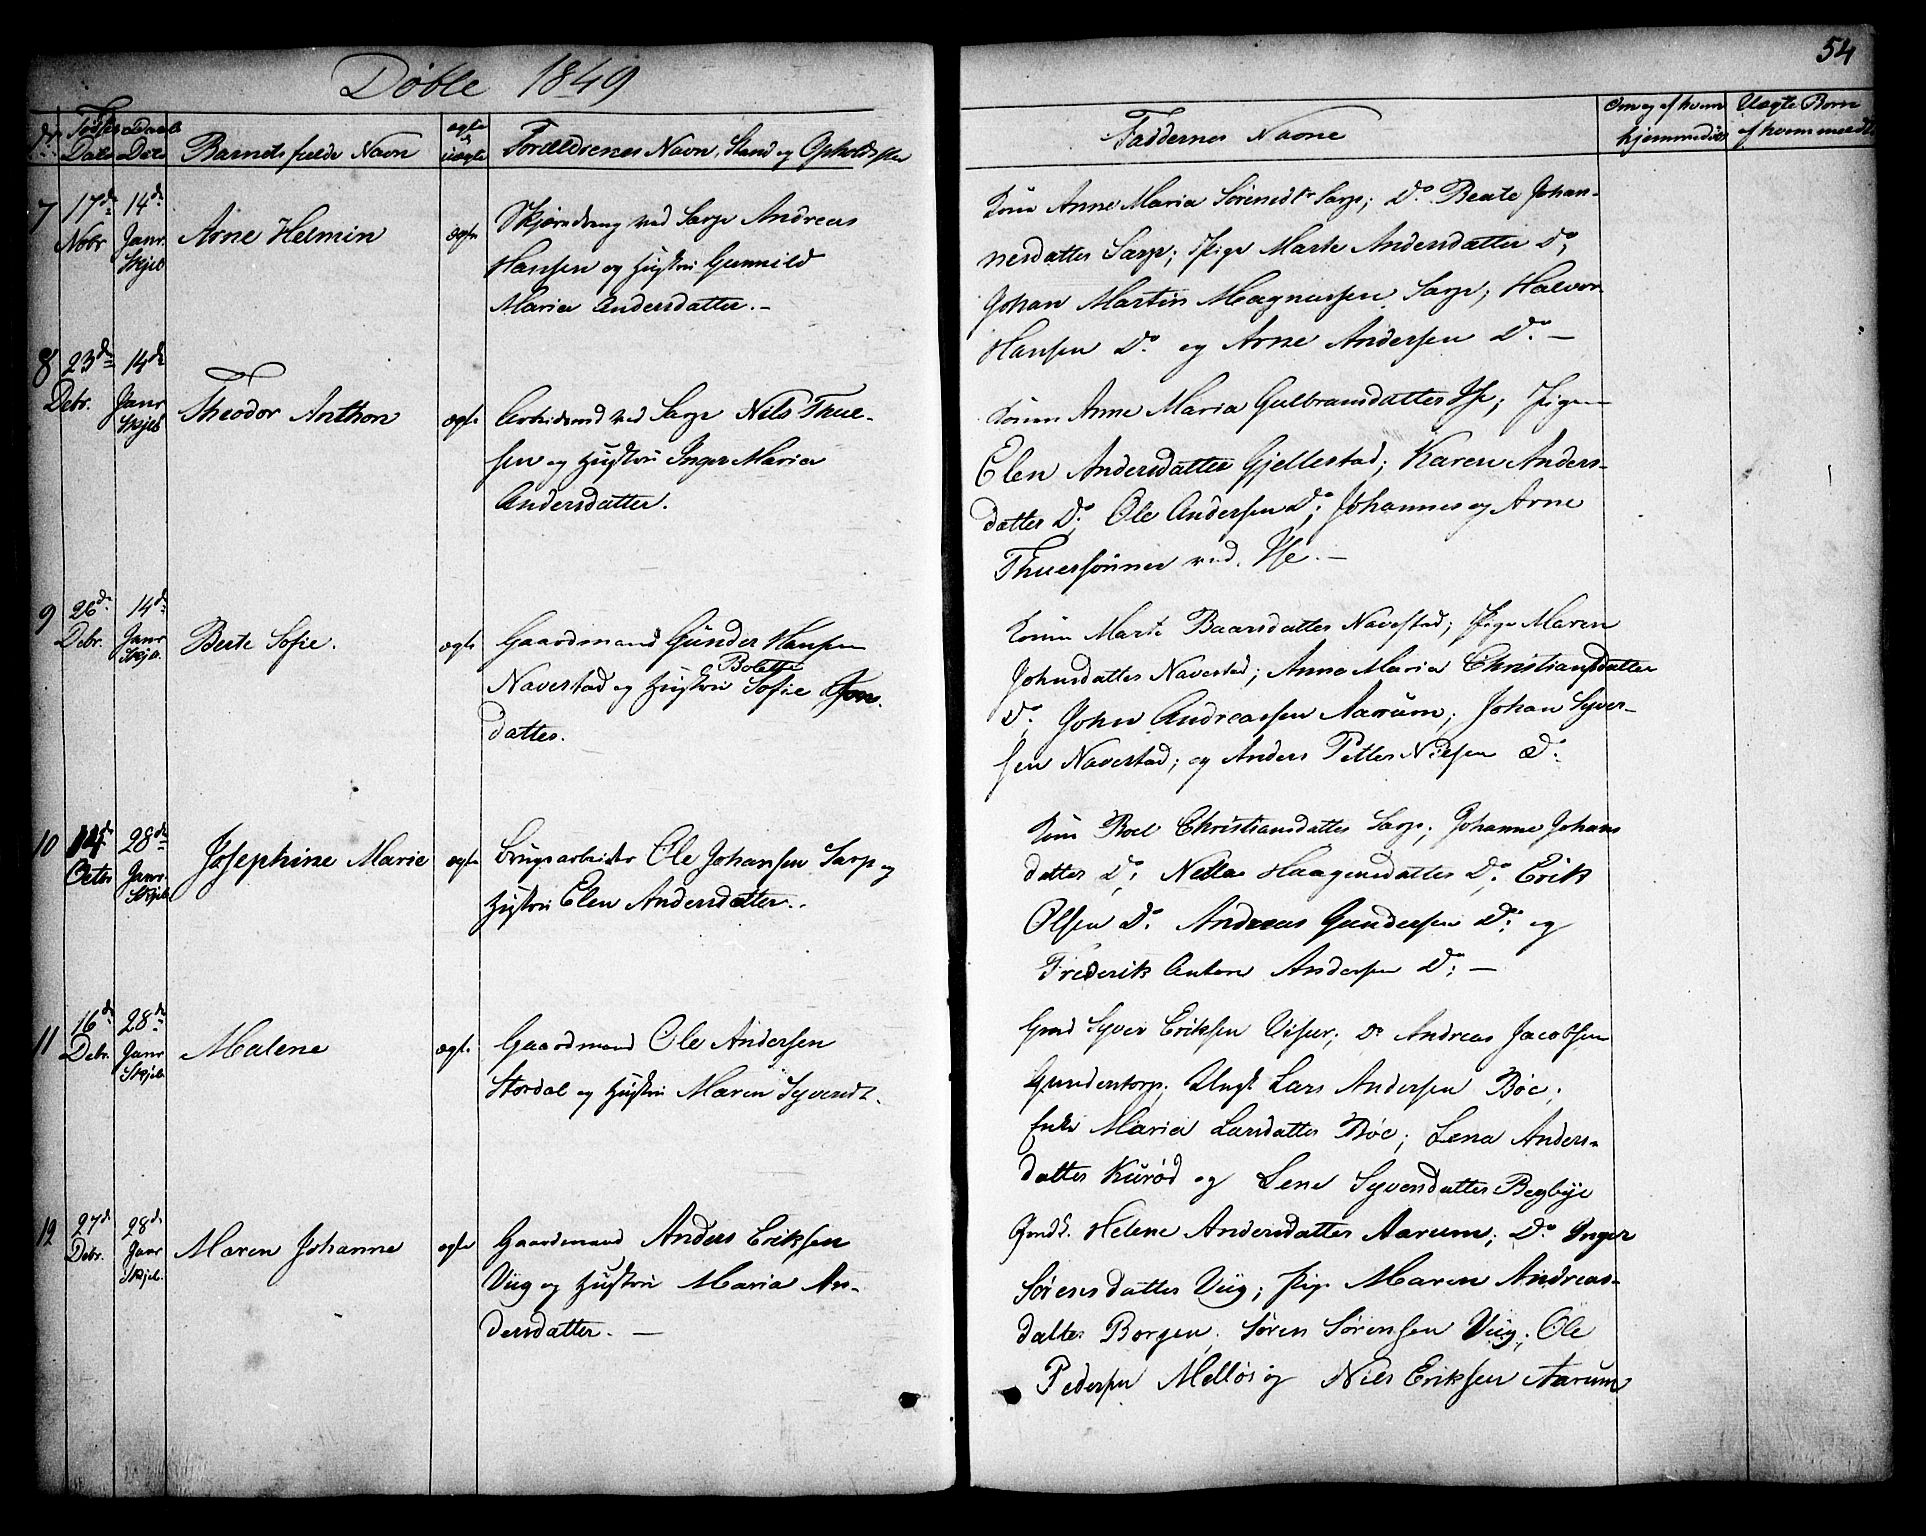 54
Døbte 1849
Nr. Fødsels Dato Daabs Dato Barnets fulde Navn ægte uægte Forældrenes Navn, Stand og Opholdssted
Faddernes Navne
Om og af hvem hjemmedøbt
Uægte Børn af hvem meldt
7 17de Novbr 14de Janr Skjeb
Arne Helmin
ægte
ved Sarp Andreas
Hansen og Hustru Gunnild
Maria Andersdatter.-
Kone Anne Maria Sørensdtr Sarp; Do Beate Johan-
nesdatter Sarp; Pige Marte Andersdatter Do;
Johan Martin Magnussen Sarp; Halvor
Hansen Do og Arne Andersen Do –
8 23de Debr. 14de Janr Skjeb
Theodor Anthon
ægte
Arbeidsmd ved Sarp Nils Thue-
sen og Hustru Inger Maria
Andersdatter.
Konen Anne Maria Gulbransdatter Ise; Pigen
Elen Andersdatter Gjellestad; Karen Anders-
datter Do; Ole Andersen Do; Johannes og Arne
Thuesønner ved Ise.–
9 26de Debr. 14de Janr Skjeb.
Berte Sofie.
ægte
Gaardmand Gunder Hansen
Navestad og Hustru Bolette Sofie Jon-
datter.
Konen Marte Baarsdatter Navestad; Pige Maren
Johnsdatter Navestad; Anne Maria Christiansdatter
Do; John Andreassen Aarum; Johan Syver-
sen Navestad; og Anders Petter Nilsen Do.
10 14de Octbr 28de Janr Skjeb
Josephine Marie
ægte
Brugsarbeider Ole Johansen Sarp og
Hustru Elen Andersdatter..
Kone Boel Christiansdatter Sarp; Johanne Johans
datter Do; Nella Haagensdatter Do; Erik
Olsen Do Andreas Gundersen Do; og
Frederik Anton Andersen Do; –
11 16de Debr. 28de Janr Skjeb
Malene
ægte
Gaardmand Ole Andersen
Stordal og Hustru Maren Syversdt.
Gmd Syver Eriksen Visur; Do Andreas Jacobsen
Gunderstorp; Ungk Lars Andersen Bøe;
Enke Maria Larsdatter Bøe; Lena Anders-
datter Kurød og Lene Syversdatter Begbye
12 27de Debr. 28de Janr Skjeb.
Maren Johanne
ægte
Gaardmand Anders Eriksen
Viig og Hustru Maria An-
dersdatter. –
Helene Andersdatter Aarum; Do Inger
Sørensdatter Viig; Pige Maren Andreas-
datter Borgen, Søren Sørensen Viig; Ole
Pedersen Melløs og Nils Eriksen Aarum